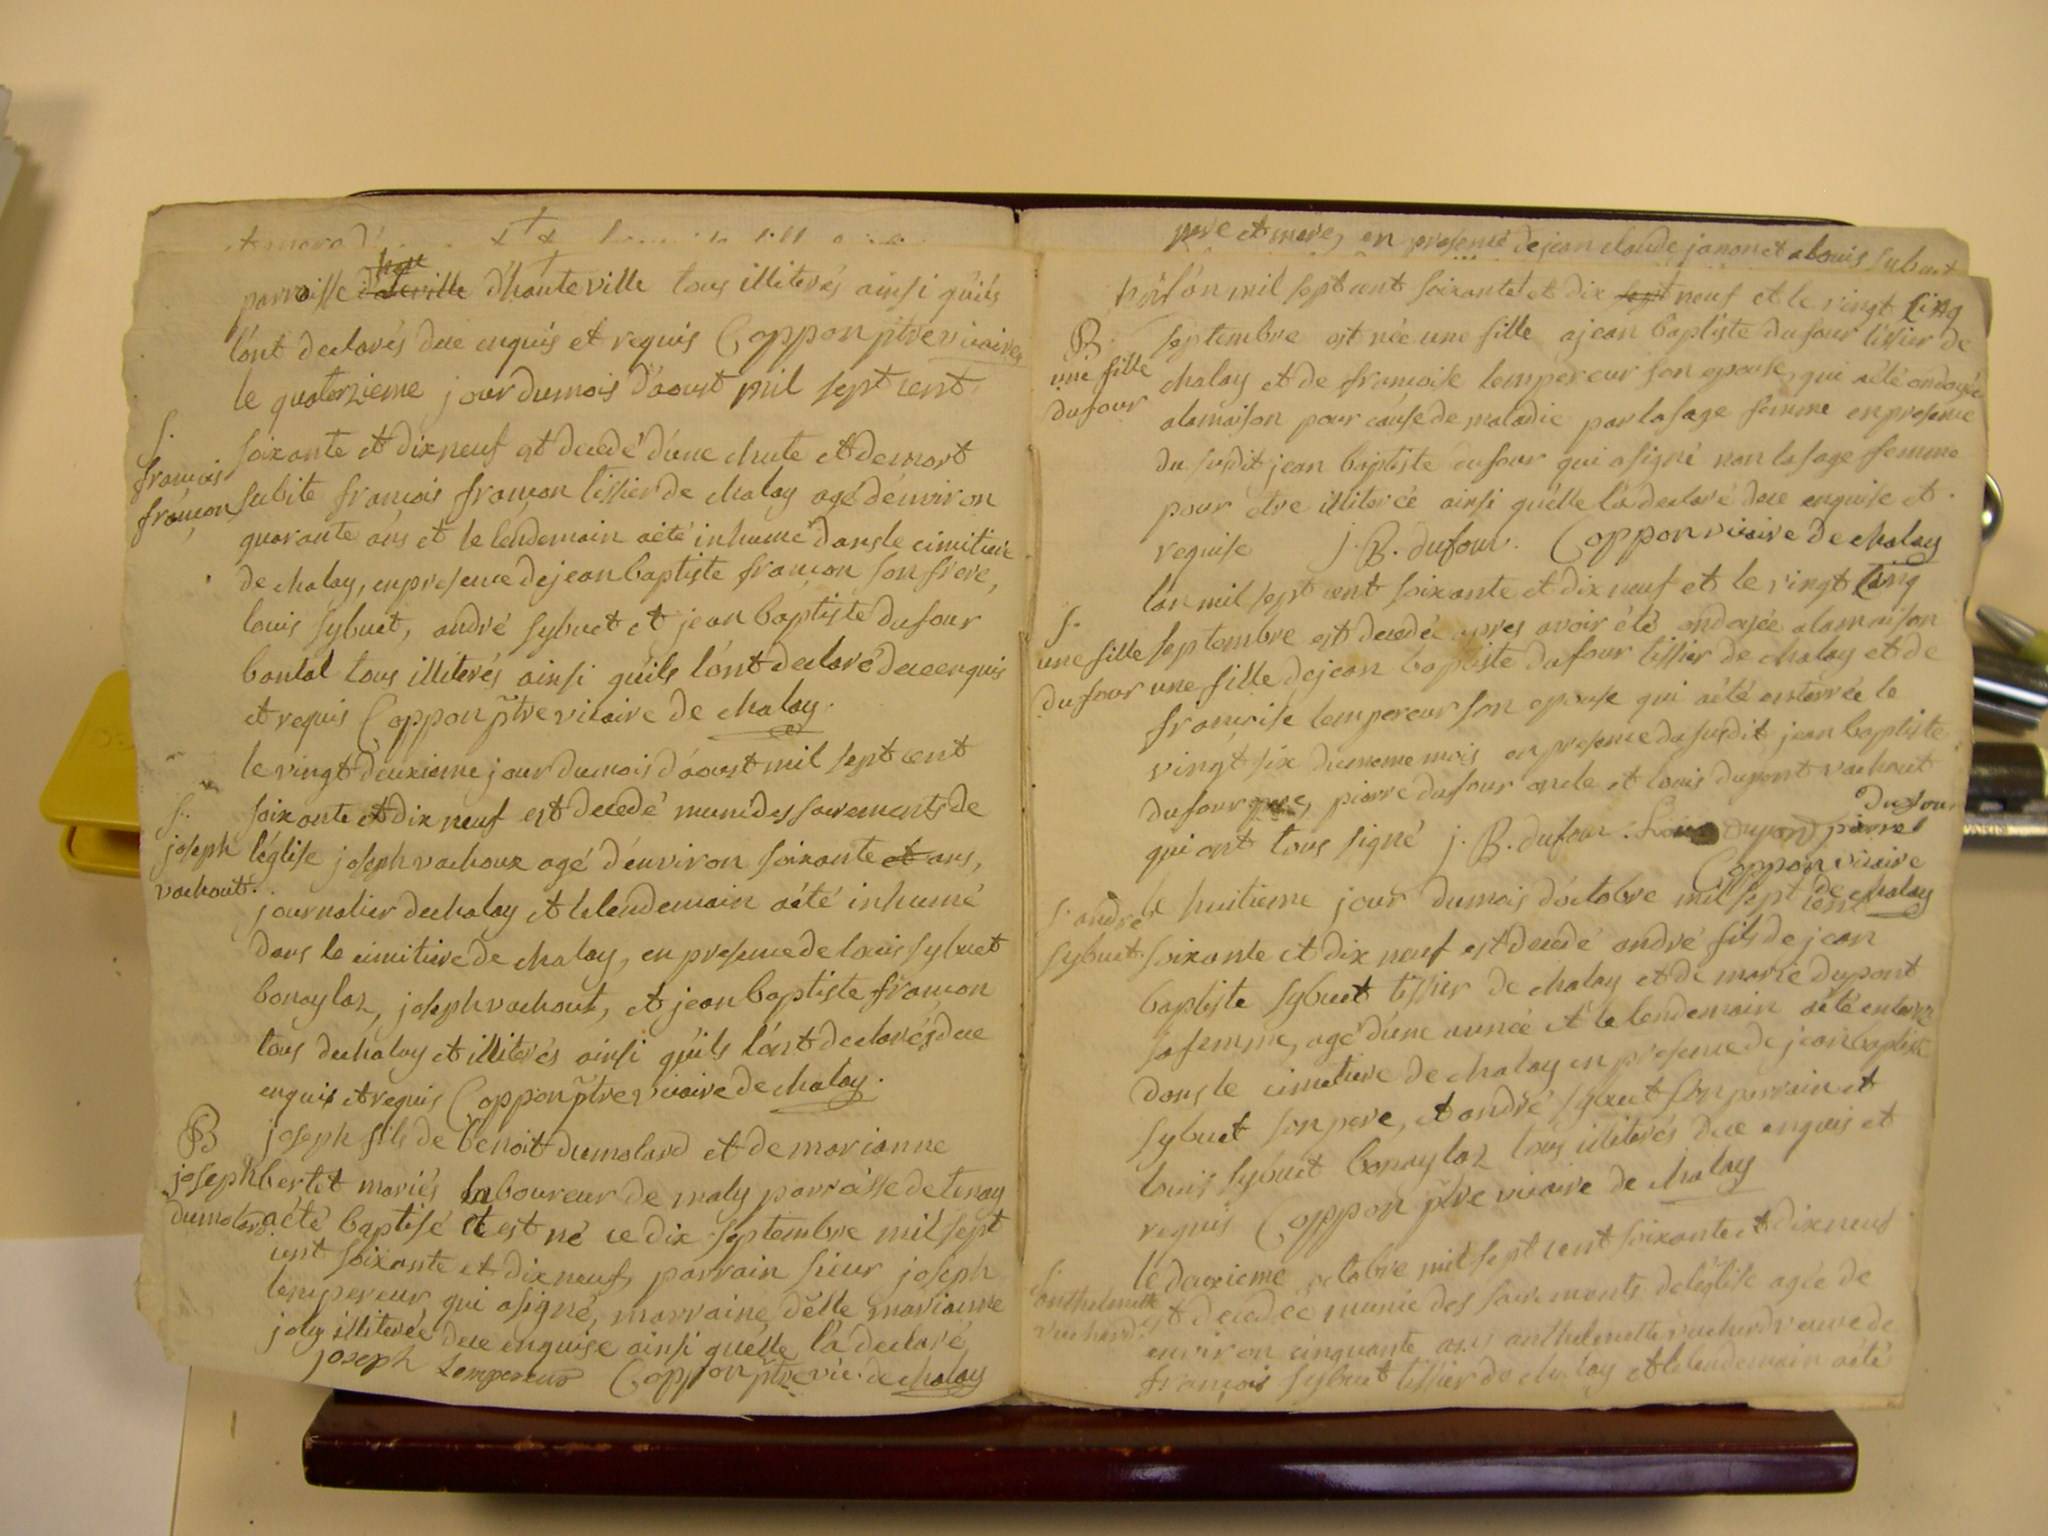 parroisse d'hauteville tous illiterés ainsi qu'ils
l'ont declarés düe enquis et requis Coppon ptre vicaire
le quatorzieme jour du mois d'aoust mil sept cent
S.
françois
françon
soixante et dix neuf est decedé d'une chute et de mort
subite françois françon tissier de chalay agé d'environ
quarante ans et le lendemain a été inhumé dans le cimitiere
de chalay, en presence de jean baptiste françon son frere,
louis sybuet, andré sybuet et jean baptiste dufour
boulal tous illiterés ainsi qu'ils l'ont declaré düe enquis
et requis Coppon ptre vicaire de chalay.
le vingt deuxieme jour du mois d'aoust mil sept cent
S.
joseph
vachout.
soixante et dix neuf est decedé muni des sacrements de
l'église joseph vachoux agé d'environ soixante et ans,
journalier de chalay et le lendemain a été inhumé
dans le cimitiere de chalay, en presence de louis sybuet
bonaylaz, joseph vachout, et jean baptiste françon
tous de chalay et illiterés ainsi qu'ils l'ont declarés düe
enquis et requis Coppon ptre vicaire de chalay.
B
joseph
dumolard
joseph fils de benoit dumolard et de marianne
bertet mariés laboureur de maly parroisse de tenay
a été baptisé et est né ce dix septembre mil sept
cent soixante et dix neuf, parrain sieur joseph
lempereur qui a signé, marraine delle marianne
joly illiterée düe enquise ainsi qu'elle l'a declaré
joseph Lempereur Coppon ptre vic. de chalay
pere et mere, en presence de jean claude janon et a louis sybuet
l'an mil sept cent soixante et dix sept neuf et le vingt cinq
B.
une fille
dufour
septembre est née une fille a jean baptiste dufour tissier de
chalay et de françoise lempereur son epouse, qui a été ondoyée
a la maison pour cause de maladie par la sage femme en presence
du susdit jean baptiste dufour qui a signé non la sage femme
pour etre illiterée ainsi qu'elle l'a declaré düe enquise et
requise J. B. dufour. Coppon vicaire de chalay
l'an mil sept cent soixante et dix neuf et le vingt cinq
S.
une fille
dufour
septembre est decedée apres avoir été ondoyée a la maison
une fille de jean baptiste dufour tissier de chalay et de
françoise lempereur son epouse qui a été enterrée le
vingt six du meme mois en presence du susdit jean baptiste
dufour pere, pierre dufour oncle et louis dupont vachout
qui ont tous signé j. B. dufour. Louis dupond pierre
dufour
Coppon vicaire
de chalay
S. andré
sybuet.
le huitieme jour du mois d'octobre mil sept cent
soixante et dix neuf est decedé andré fils de jean
baptiste sybuet tissier de chalay et de marie dupont
sa femme, agé d'une année et le lendemain a été enterré
dans le cimetiere de chalay en presence de jean baptiste
sybuet son pere, et andré sybuet son parrain et
louis sybuet bonaylaz tous illiterés düe enquis et
requis Coppon ptre vicaire de chalay
S.
anthelmette
vuchard.
le deuxieme octobre mil sept cent soixante et dix neuf
est decedée munie des sacrements de l'église agée de
environ cinquante ans anthelmette vucherd veuve de
françois sybuet tissier de chalay et le lendemain a été